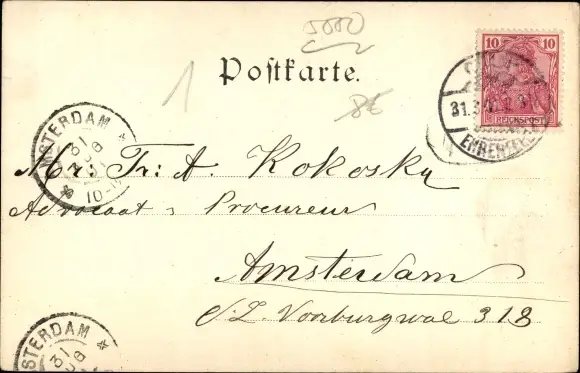 5000
Postkarte.
1
86
10 10
REICHSPOST
31.3.
EHRENFELD
AMSTERDAM
31
10-
Mr. Fr: A. Kokosky
Advocaat & Procureur
Amsterdam
O.Z. Voorburgwal 318
AMSTERDAM
31